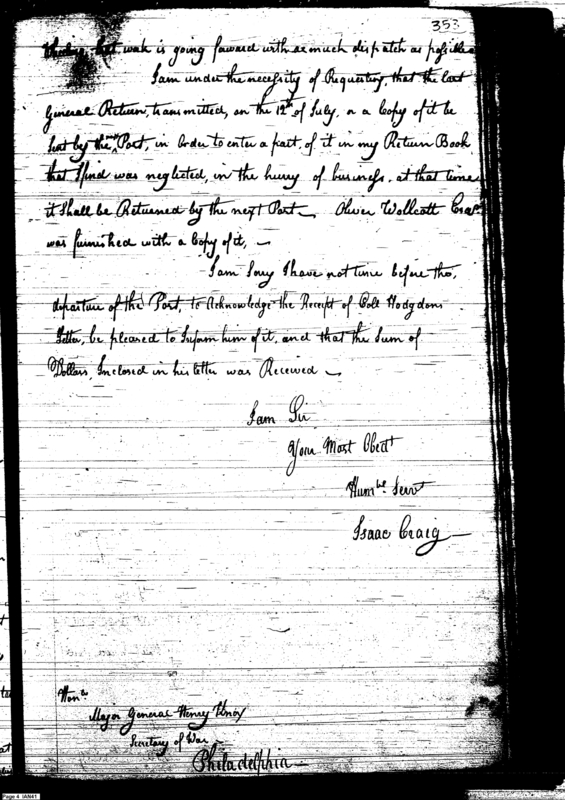 353
that work is going forward with as much dispatch as possible
I am under the necessity of Requesting, that the last
General Return, transmitted, on the 12th of July, or a Copy of it be
Sent by the next Post, in Order to enter a part, of it in my Return Book
that I find was neglected, in the hurry of business, at that time
it Shall be Returned by the next Post — Oliver Wollcott Esqr.
was furnished with a Copy of it, —
I am Sorry I have not time before the,
departure of the Post, to Acknowledge the Receipt of Colo Hodgdons
Letter, be pleased to Inform him of it, and that the Sum of
Dollars, Inclosed in his letter was Received —
I am Sir
Your Most Obedt
Humble Servt
Isaac Craig —
Honble
Major General Henry Knox
Secretary of War
Philadelphia —
Page 4 IAN41